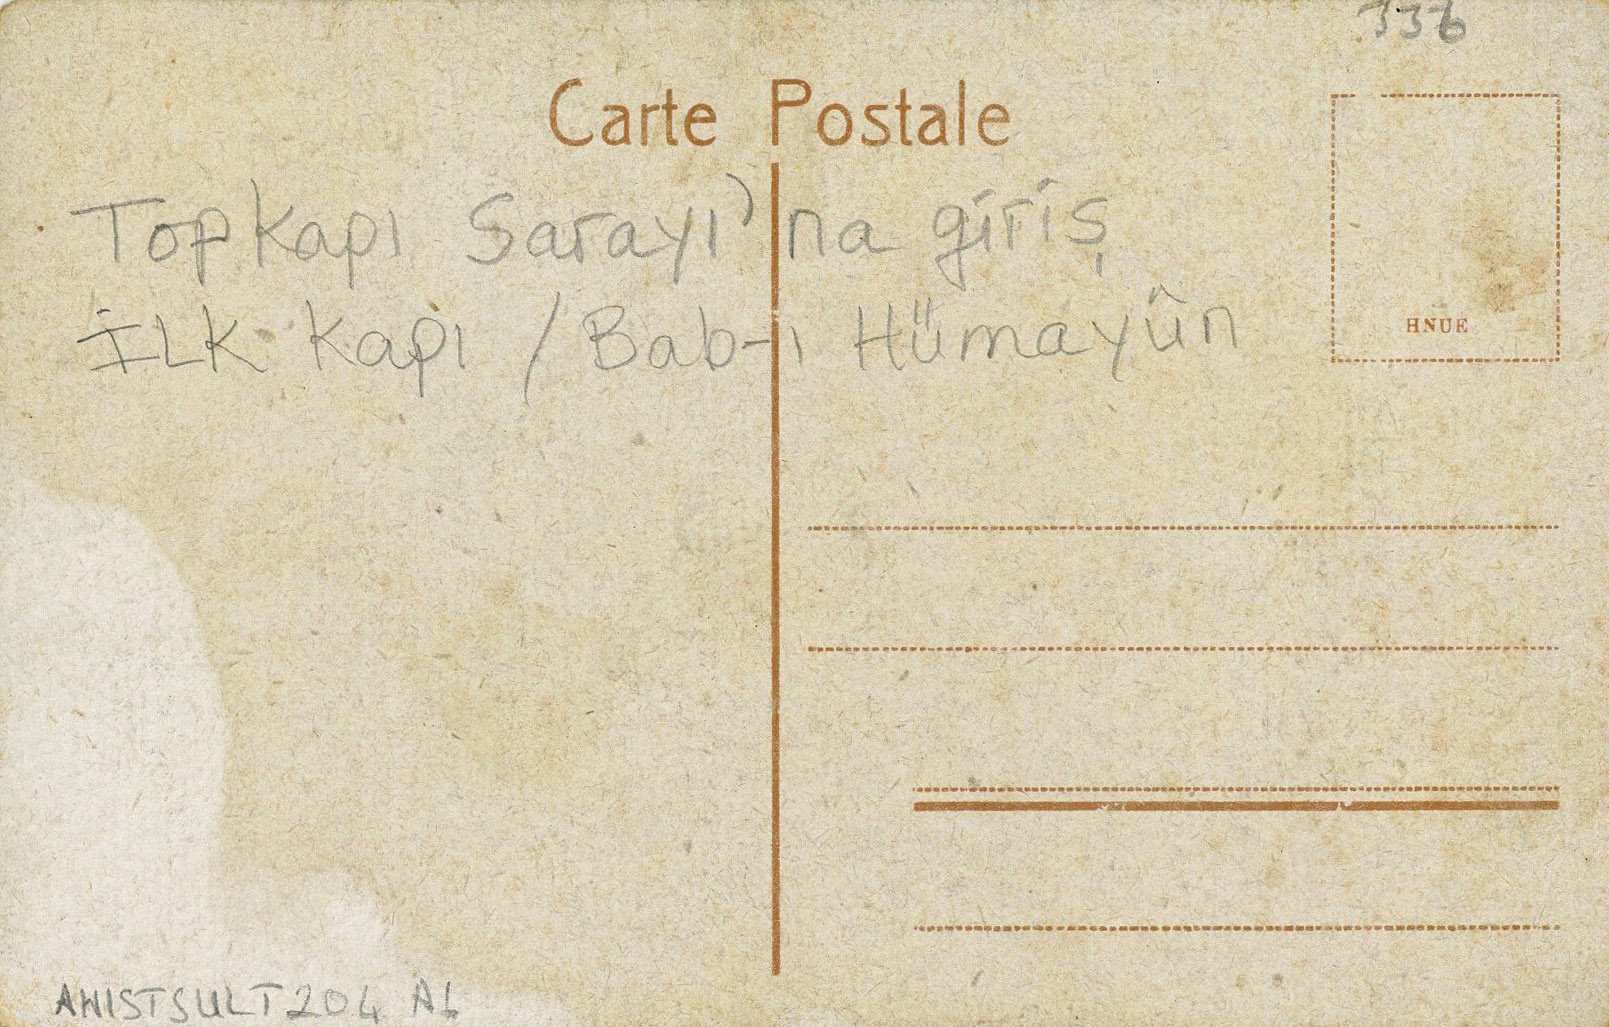 336
Carte Postale
Topkapı Sarayı'na giriş
İLK Kapı / Bab-ı Hümayûn
HNUE
AHISTSULT204 A6